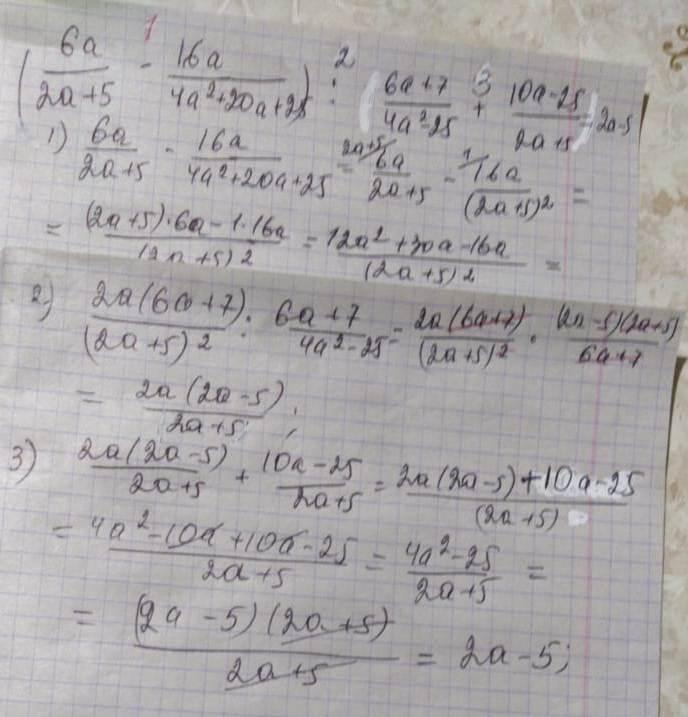 (6a/(2a+5) - 16a/(4a²+20a+25)) : (6a+7)/(4a²-25) + (10a-25)/(2a+5) = 2a-5
1) 6a/(2a+5) - 16a/(4a²+20a+25) = 2a+5/ 6a/(2a+5) - 1/ 16a/(2a+5)² =
= ((2a+5)·6a-1·16a)/(2a+5)² = (12a²+30a-16a)/(2a+5)² =
2) 2a(6a+7)/(2a+5)² : (6a+7)/(4a²-25) = 2a(6a+7)/(2a+5)² · (2a-5)(2a+5)/(6a+7)
= 2a(2a-5)/(2a+5);
3) 2a(2a-5)/(2a+5) + (10a-25)/(2a+5) = (2a(2a-5)+10a-25)/(2a+5)
= (4a²-10a+10a-25)/(2a+5) = (4a²-25)/(2a+5) =
= (2a-5)(2a+5)/(2a+5) = 2a-5;